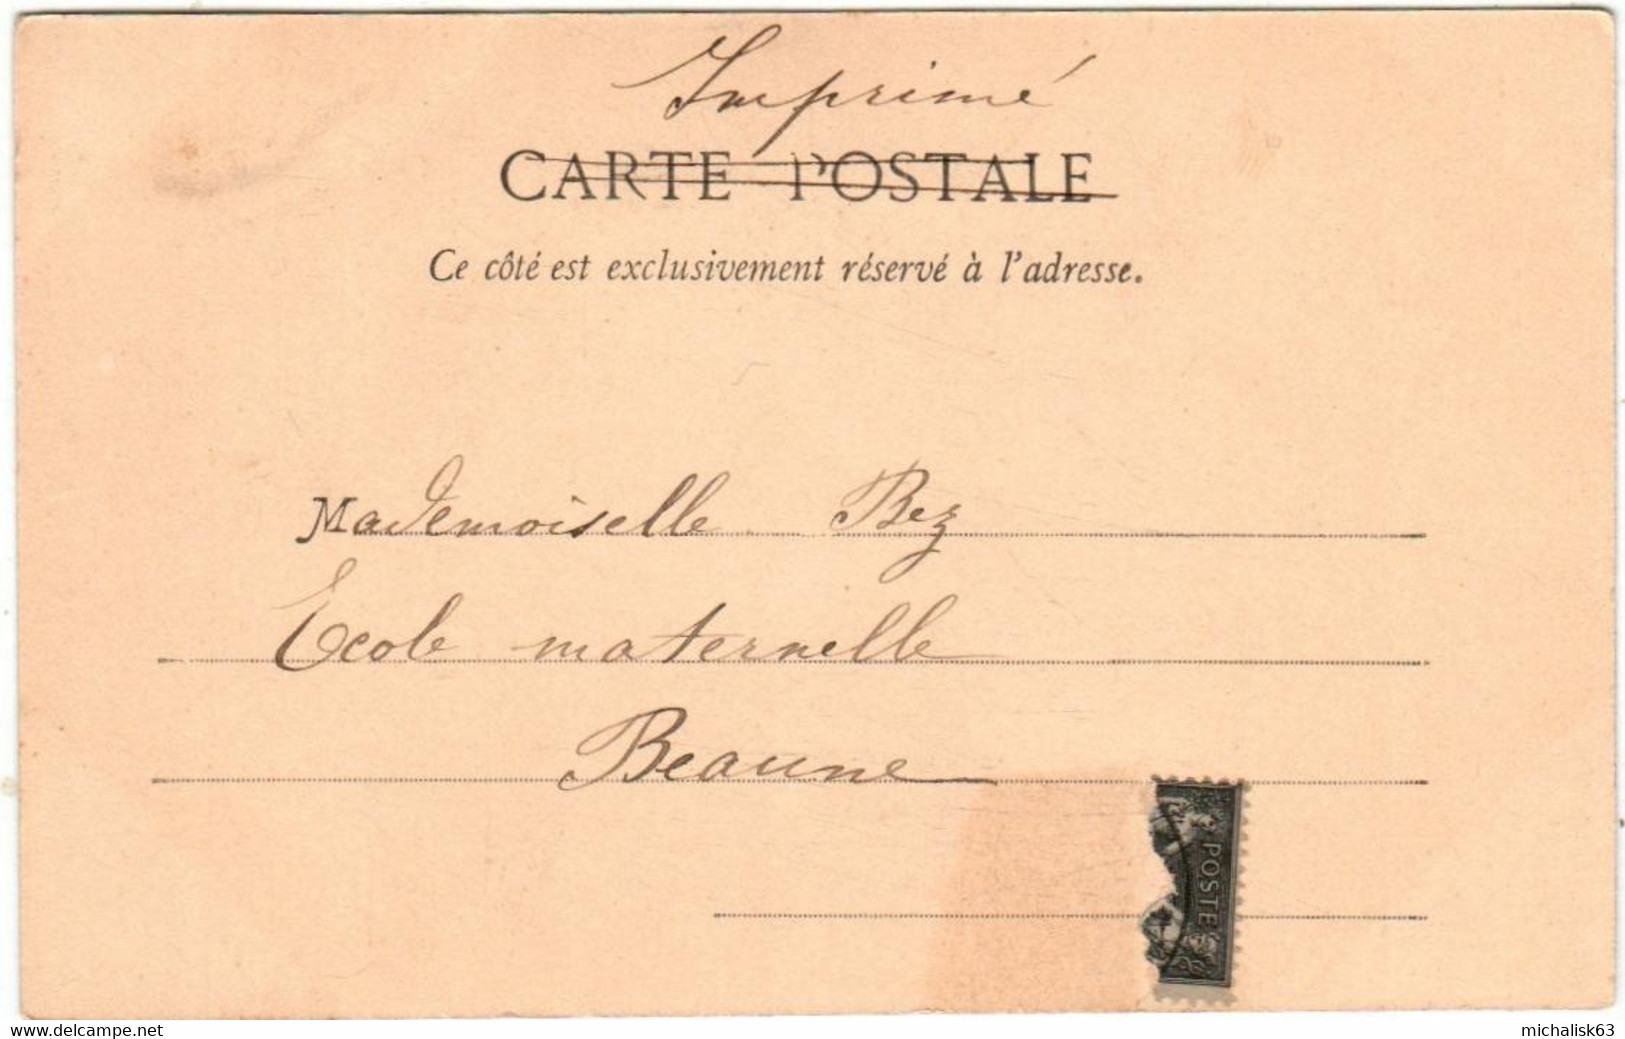 Imprimé
CARTE POSTALE
Ce côté est exclusivement réservé à l'adresse.
Mademoiselle Bez
Ecole maternelle
Beaune
POSTE
www.delcampe.net
michalisk63